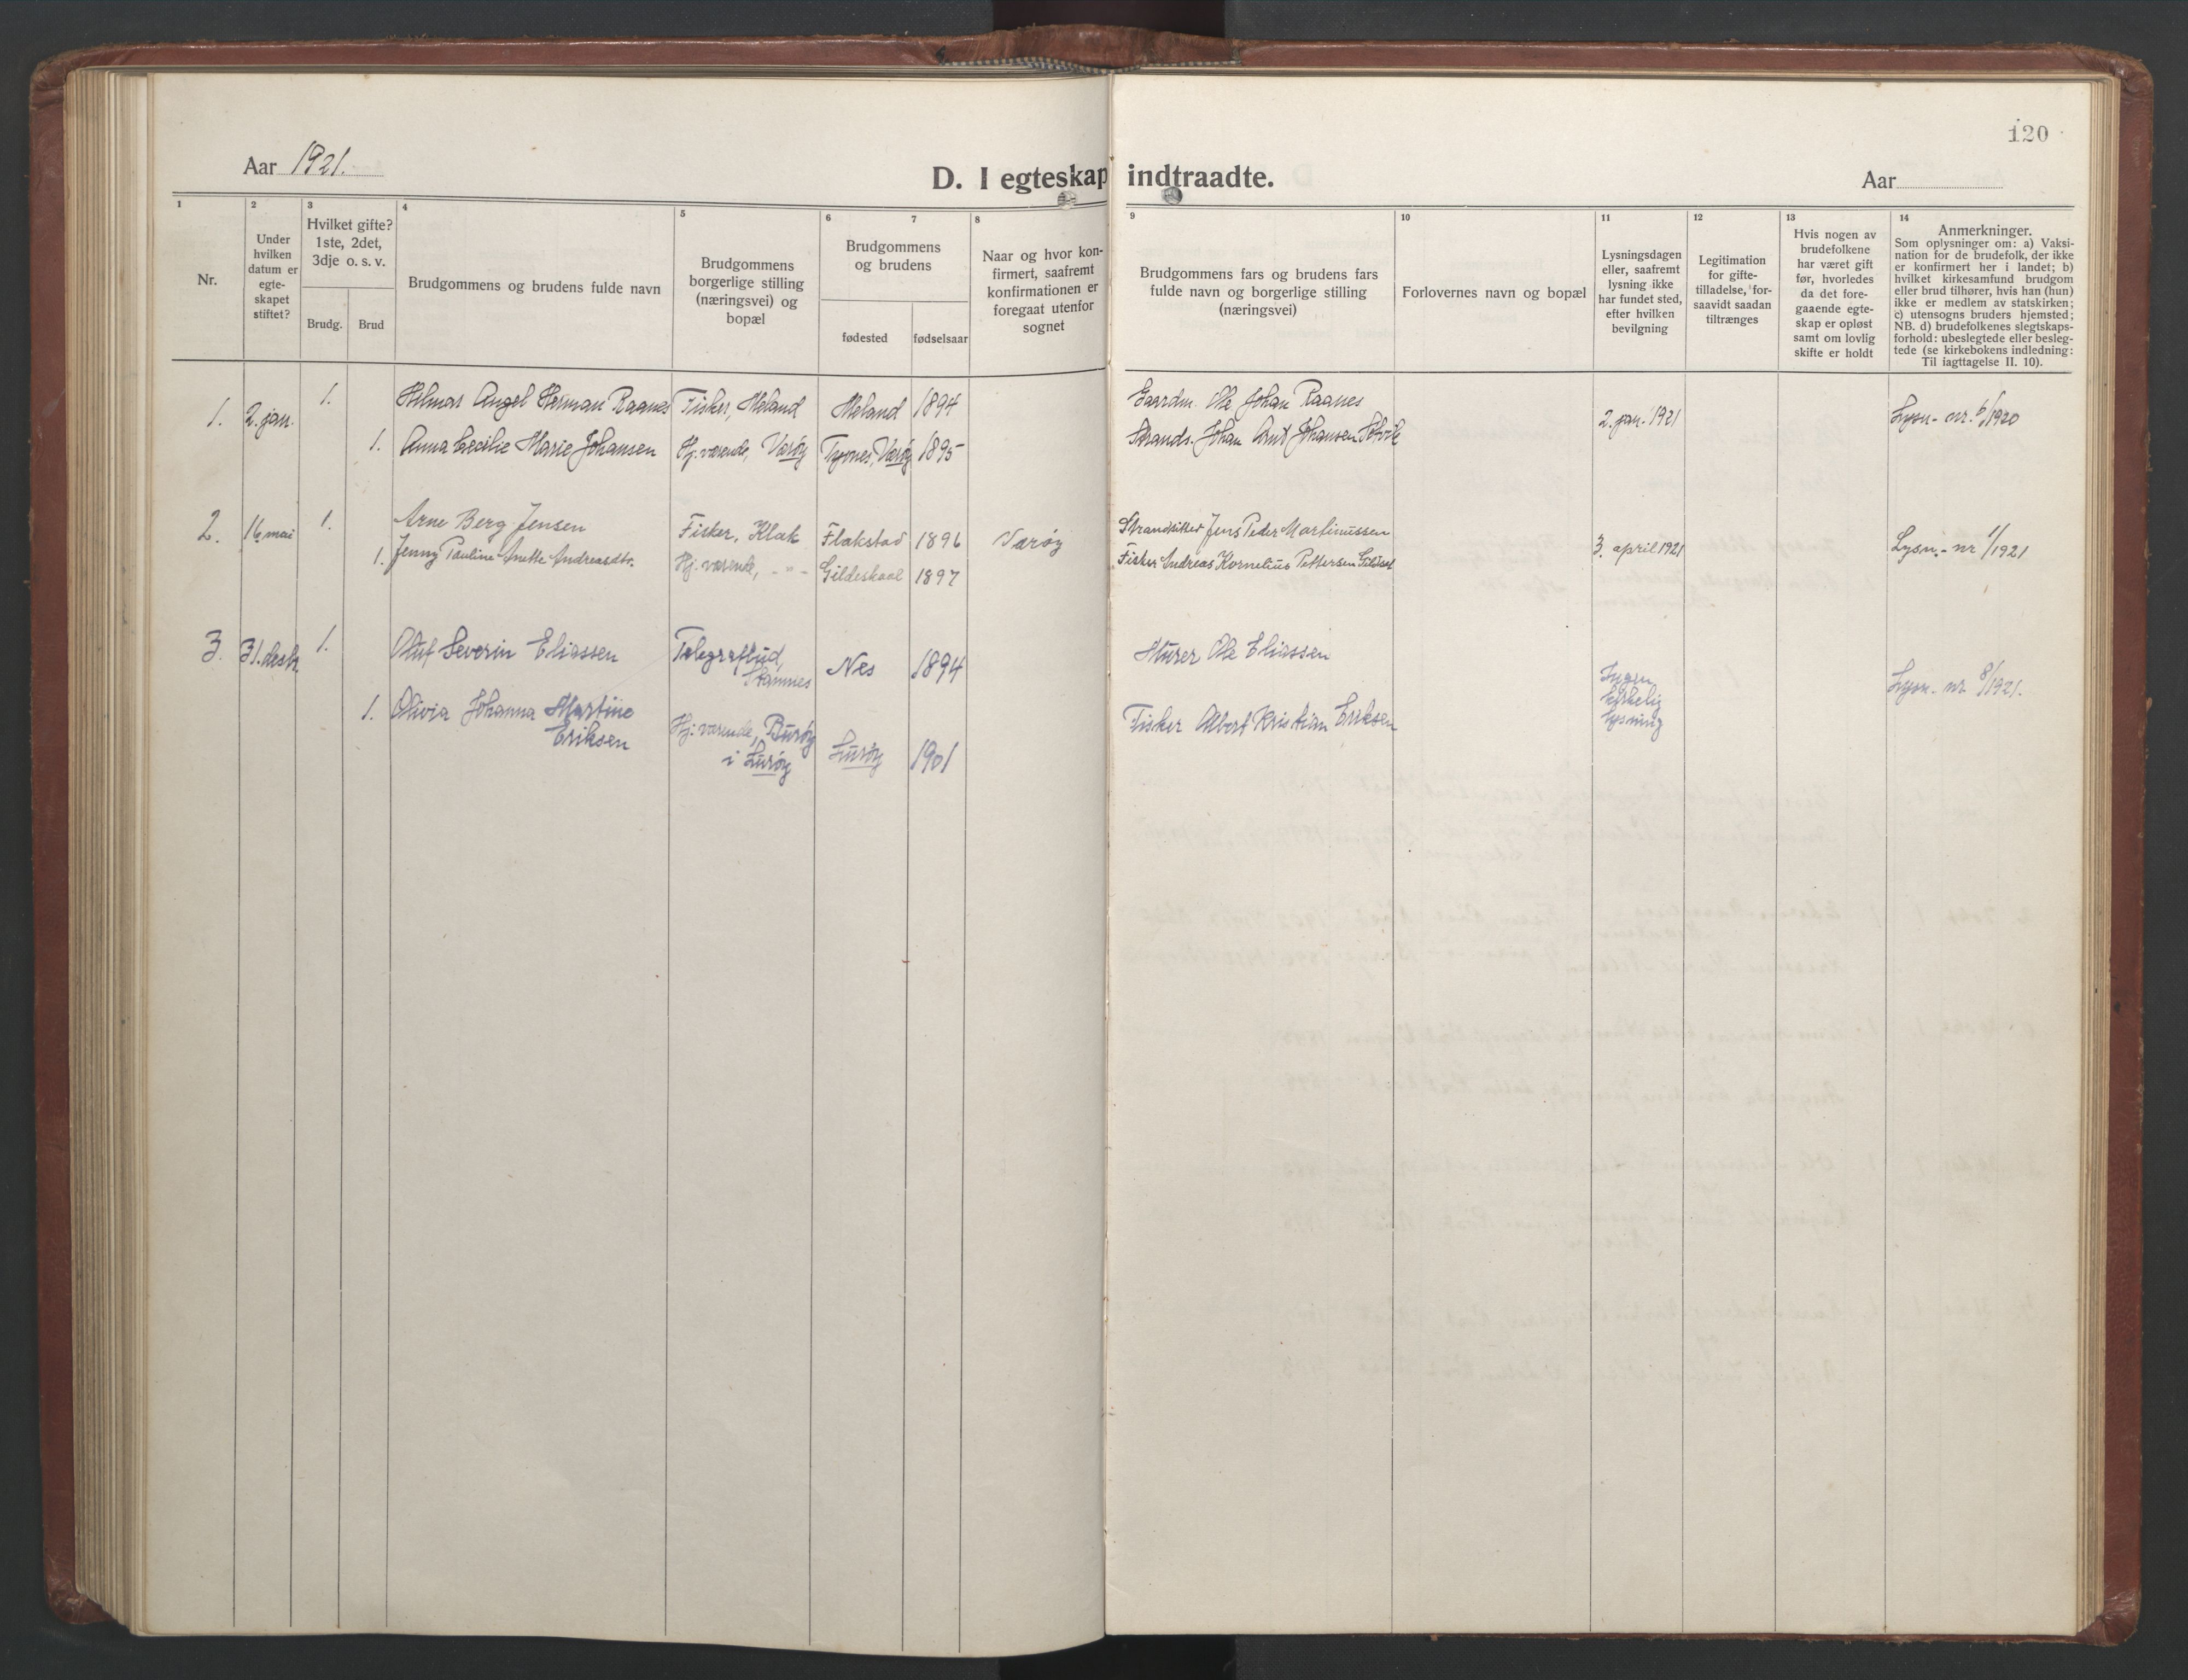 120
Aar 1921.
D. I egteskap indtraadte.
Aar
1
2
3
4
5
6
7
8
9
10
11
12
13
14
Nr.
Under
hvilken
datum er
egte-
skapet
stiftet?
Hvilket gifte?
1ste, 2det,
3dje o. s. v.
Brudg.
Brud
Brudgommens og brudens fulde navn
Brudgommens
borgerlige stilling
(næringsvei) og
bopæl
Brudgommens
og brudens
fødested
fødselsaar
Naar og hvor kon-
firmert, saafremt
konfirmationen er
foregaat utenfor
sognet
Brudgommens fars og brudens fars
fulde navn og borgerlige stilling
(næringsvei)
Forlovernes navn og bopæl
Lysningsdagen
eller, saafremt
lysning ikke
har fundet sted,
efter hvilken
bevilgning
Legitimation
for gifte-
tilladelse, for-
saavidt saadan
tiltrænges
Hvis nogen av
brudefolkene
har været gift
før, hvorledes
da det fore-
gaaende egte-
skap er opløst
samt om lovlig
skifte er holdt
Anmerkninger.
Som oplysninger om: a) Vaksi-
nation for de brudefolk, der ikke
er konfirmert her i landet; b)
hvilket kirkesamfund brudgom
eller brud tilhører, hvis han (hun)
ikke er medlem av statskirken;
c) utensogns bruders hjemsted;
NB. d) brudefolkenes slegtskaps-
forhold: ubeslegtede eller besleg-
tede (se kirkebokens indledning:
Til iagttagelse II. 10).
1. 2. jan. 1. Hilmar Angel Herman Raanes Fisker, Meland Meland 1894 Gaardm. Ole Johan Raanes 2. jan. 1921 Lysn.- nr. 6/1920
1. Anna Cecilie Marie Johansen Hj. værende, Værøy Værøy 1895 Strands. Johan Arnt Johansen
2. 16. mai 1. Arne Berg Jensen Fisker, Klak Flakstad 1896 Værøy Strandsitter Jens Peder Martinussen 3. april 1921 Lysn.- nr 1/1921
1. Jenny Pauline Anette Andreasdtr. Hj. værende, -"- Gildeskaal 1897 Fisker Andreas Kornelius Pettersen
3. 31. desb. 1. Oluf Severin Eliassen Telegrafbud, Nes 1894 Murer Ole Eliassen Ingen Lysn.- nr 8/1921.
Stamnes kirkelig
1. Olivia Johanna Martine Hj: værende, Burøy Fisker Albert Kristian Eriksen lysning
Eriksen i Lurøy Lurøy 1901